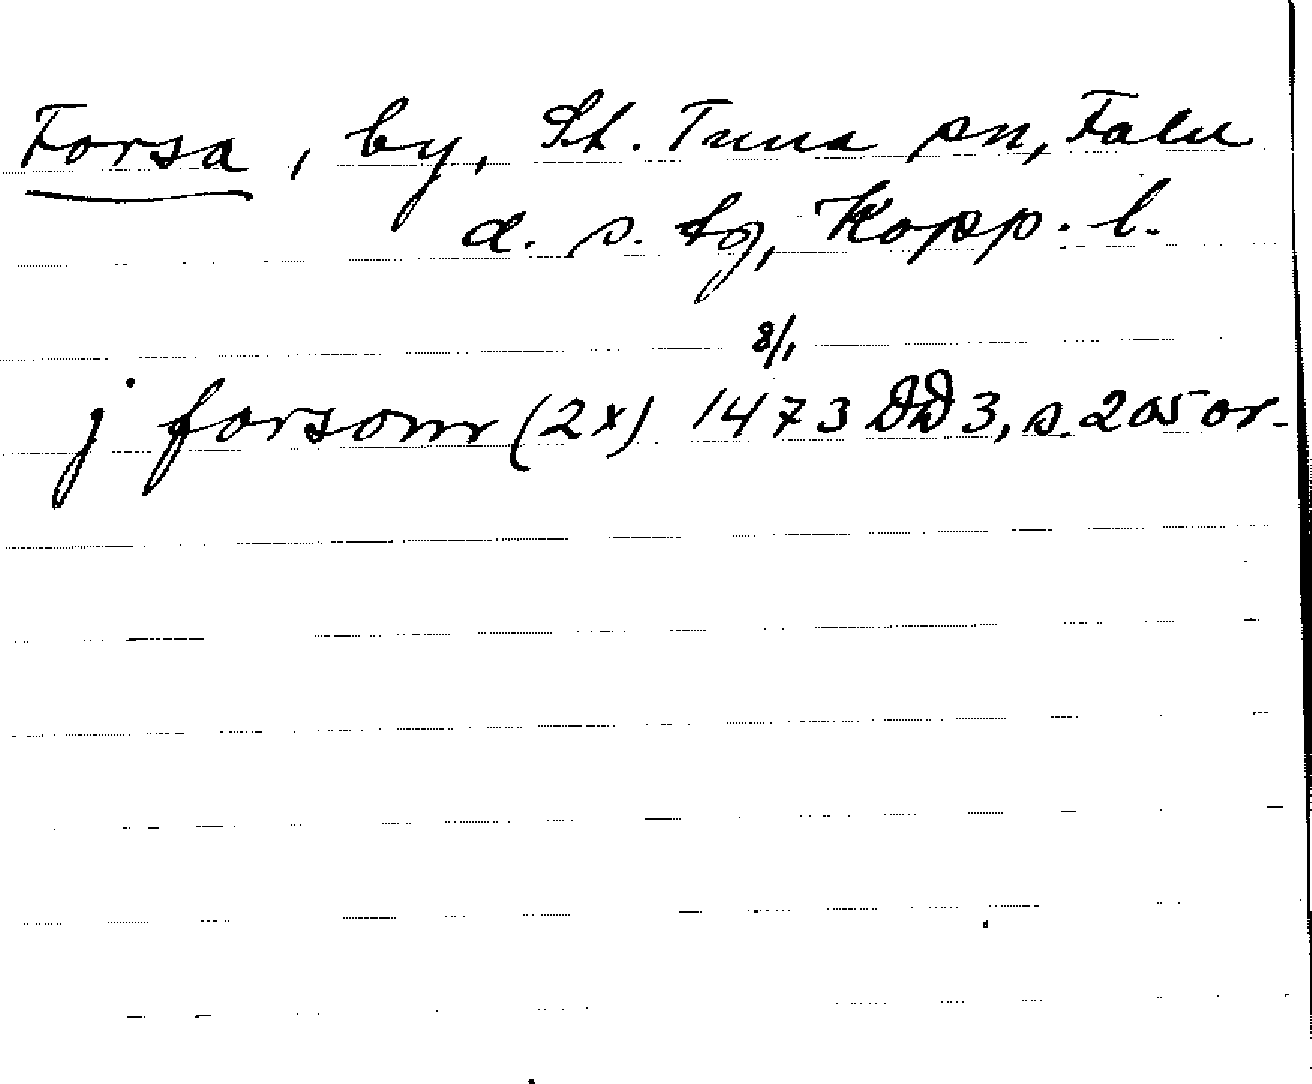 Forsa, by, St. Tuna sn, Falu
d. s. tg, Kopp. l.
8/1
j forsom (2x) 1473 DD 3, s. 205 or.